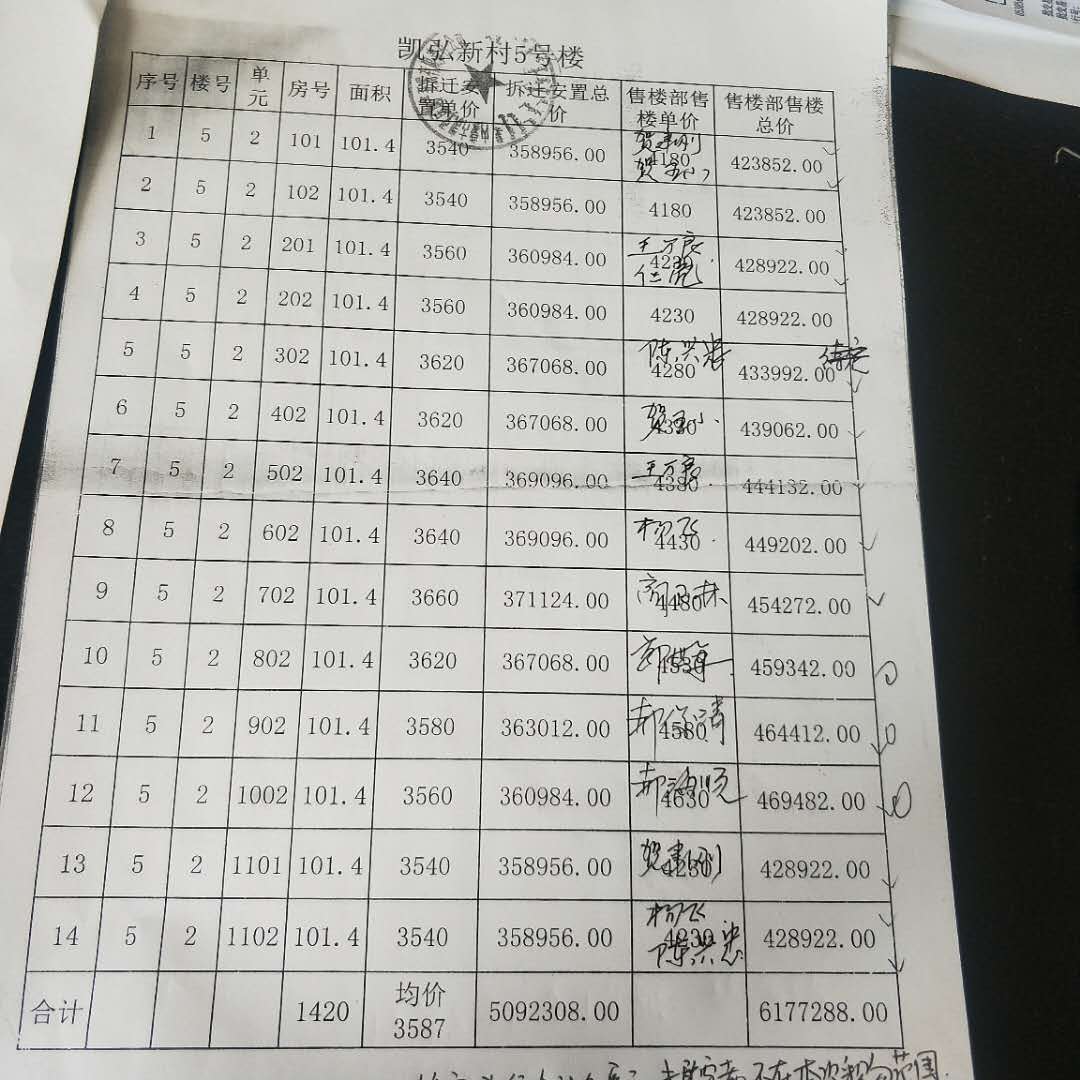 凯弘新村5号楼
序号 楼号 单元 房号 面积 拆迁安置单价 拆迁安置总价 售楼部售楼单价 售楼部售楼总价
1 5 2 101 101.4 3540 358956.00 4180 423852.00
2 5 2 102 101.4 3540 358956.00 4180 423852.00
3 5 2 201 101.4 3560 360984.00 4230 428922.00
4 5 2 202 101.4 3560 360984.00 4230 428922.00
5 5 2 302 101.4 3620 367068.00 4280 433992.00 待定
6 5 2 402 101.4 3620 367068.00 4330 439062.00
7 5 2 502 101.4 3640 369096.00 4380 444132.00
8 5 2 602 101.4 3640 369096.00 杨飞 4430 449202.00
9 5 2 702 101.4 3660 371124.00 4480 454272.00
10 5 2 802 101.4 3620 367068.00 4530 459342.00
11 5 2 902 101.4 3580 363012.00 4580 464412.00
12 5 2 1002 101.4 3560 360984.00 4630 469482.00
13 5 2 1101 101.4 3540 358956.00 4230 428922.00
14 5 2 1102 101.4 3540 358956.00 杨飞 4230 428922.00
合计 1420 均价3587 5092308.00 6177288.00